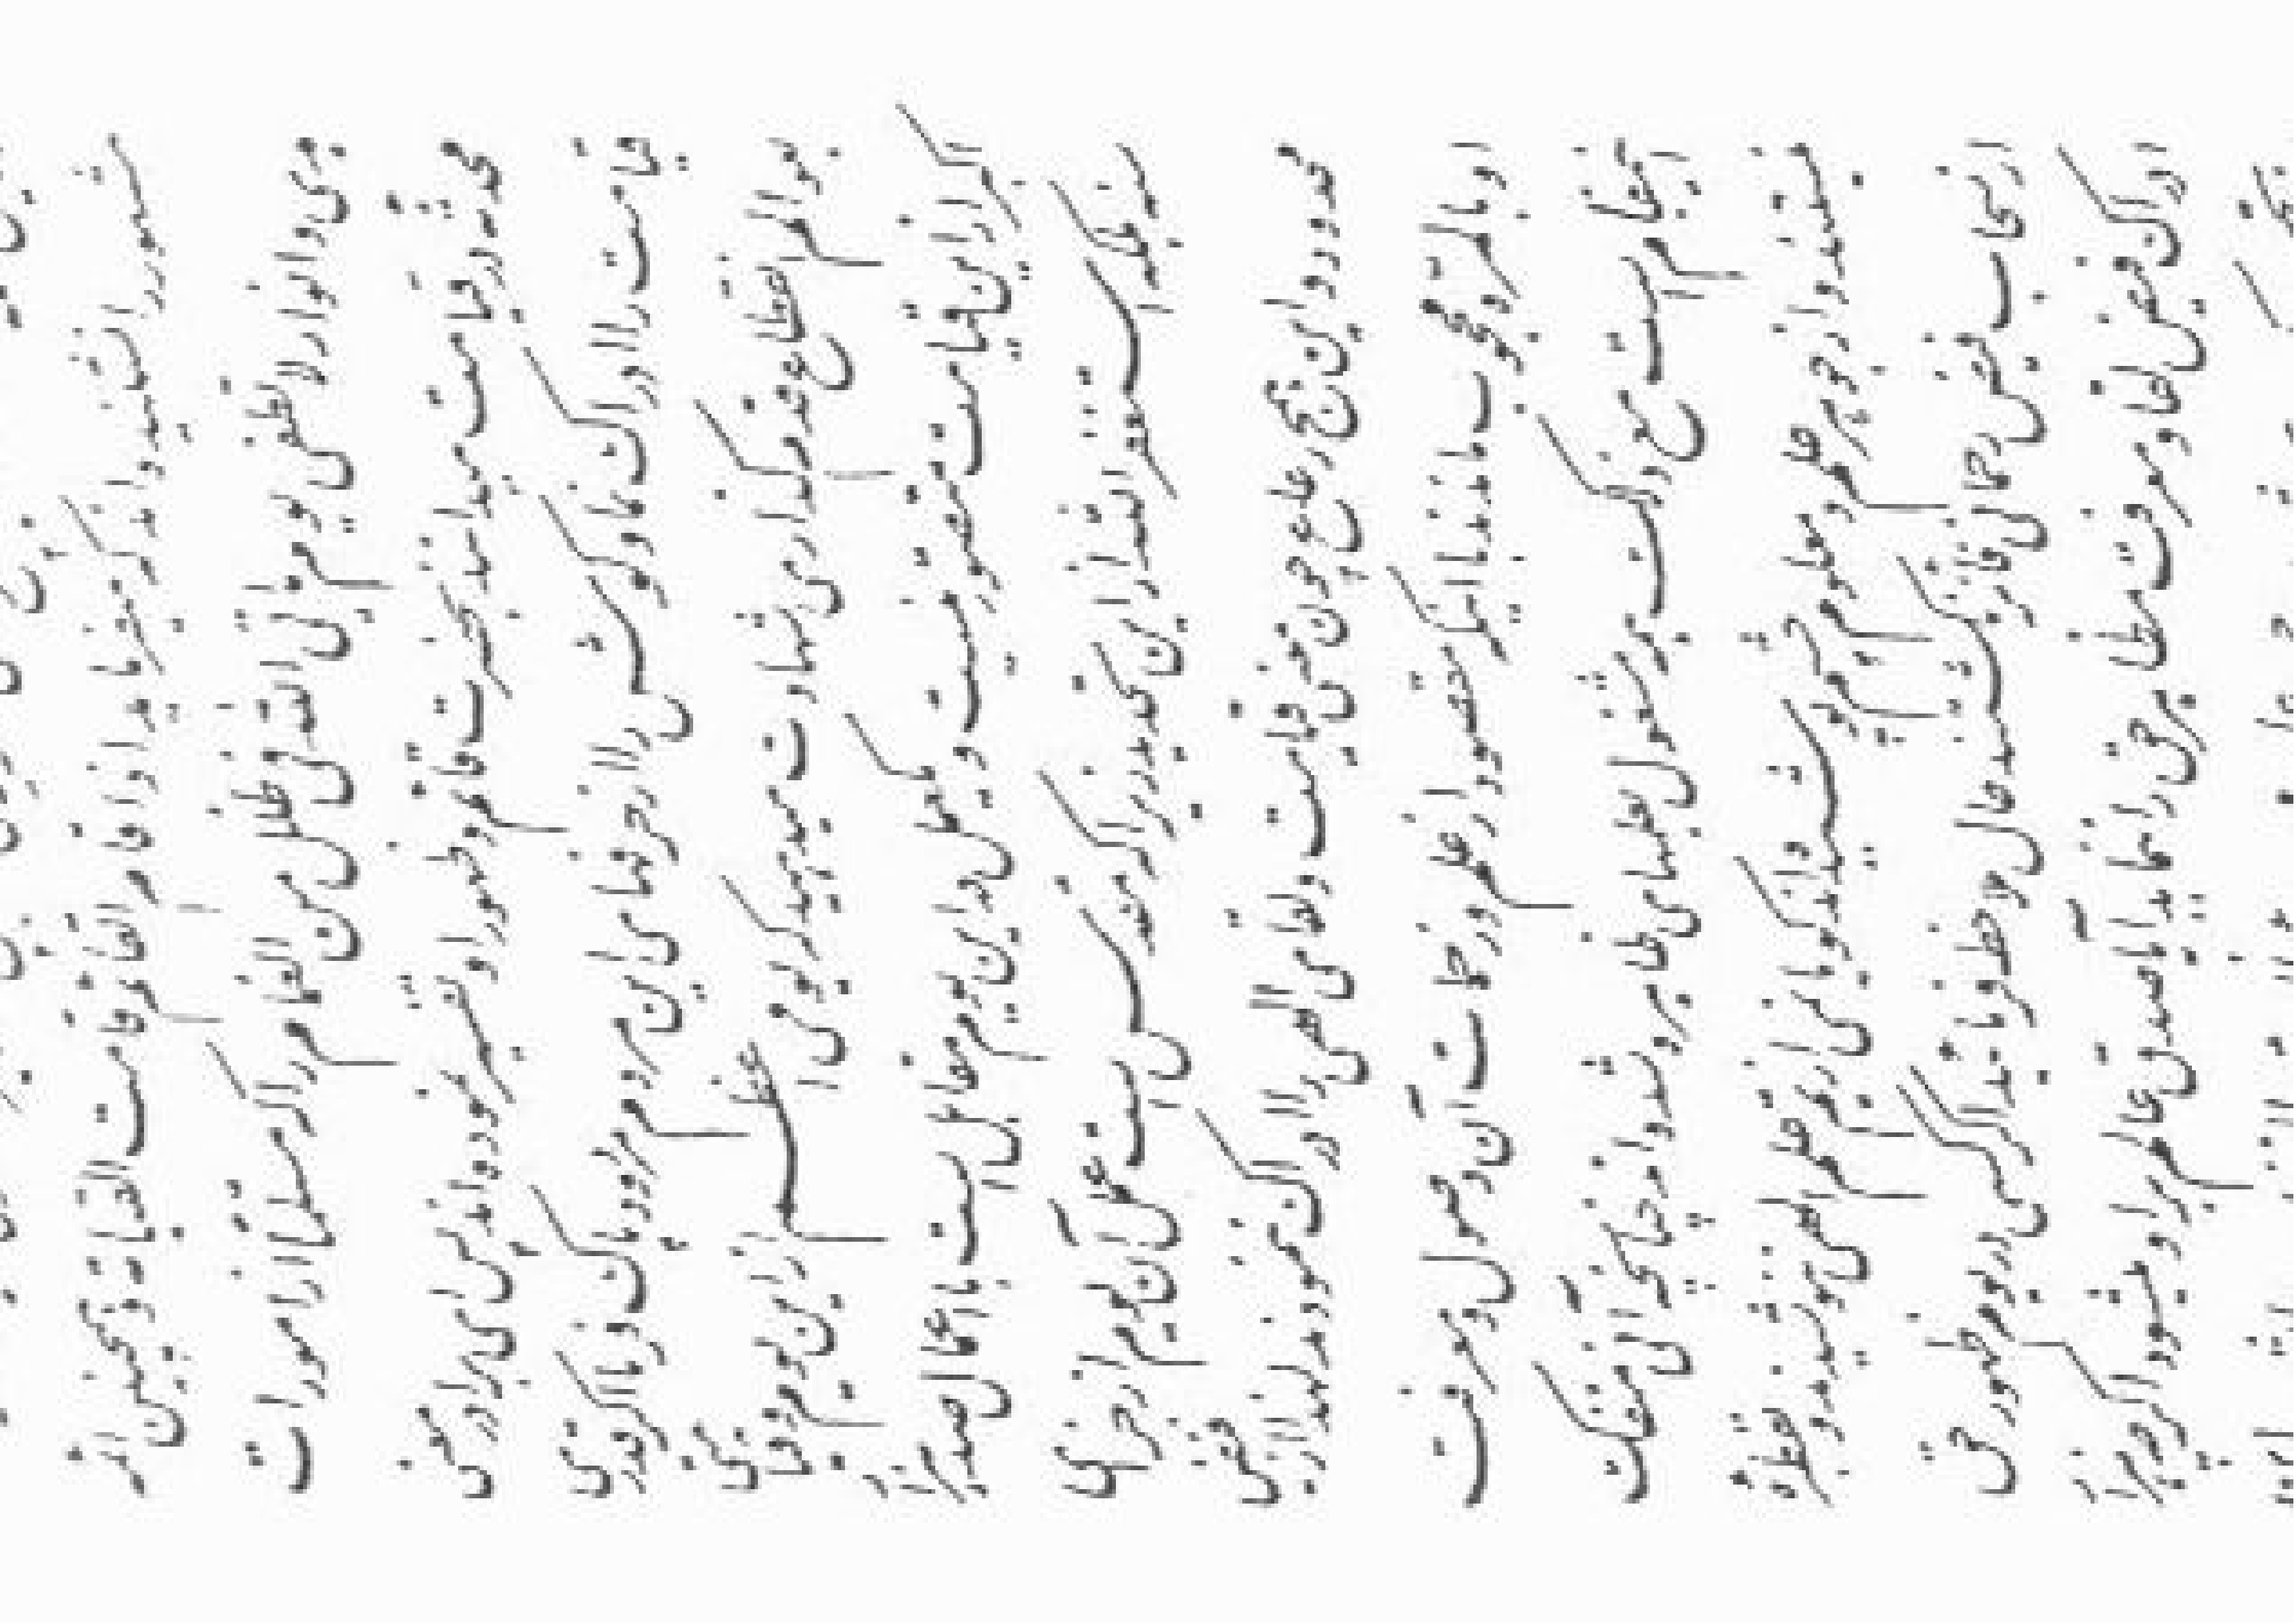 مستور را نشنیده‌اند که میفرماید اذا قام القائم قامت القیامة و همچنین ائمه
هدی و انوار لا تطفی الله فی ظلل من الغمام را که مسلما از امورات
محدثه در قیامت میدانند بحضرت قائم و ظهور او تفسیر نموده‌اند پس ای برادر معنی
قیامت را ادراک نما و گوش را از حرفهای این مردم مردود پاک فرما اگر قدری
بعوالم انقطاع قدم گذاری شهادت میدهید که یومی اعظم از این یوم و قیامتی
اکبر از این قیامت متصور نیست و یکعمل در این یوم مقابل است با اعمال صد هزار
سنه بلکه استغفر الله از این تحدید زیرا که مقدس است عمل آن یوم از جزای
محدود و این همج رعاع چون معنی قیامت و لقای الهی را ادراک ننمودند لهذا از فیض
او بالمره محجوب ماندند با اینکه مقصود از علم و زحمات آن وصول و معرفت
این مقام است مع ذلک مشغول بعلمهای ظاهره شده‌اند چنانچه آنی منفک
نیستند و از جوهر علم و معلوم چشم پوشیده‌اند گویا نمی از یم علم الهی ننوشیدند و بقطرهٔ
از سحاب فیض رحمانی فائز نگشتند حال ملاحظه فرمائید اگر کسی در یوم ظهور حق
ادراک فیض لقا و معرفت مظاهر حق را ننماید آیا صدق عالم بر او میشود اگر چه هزار